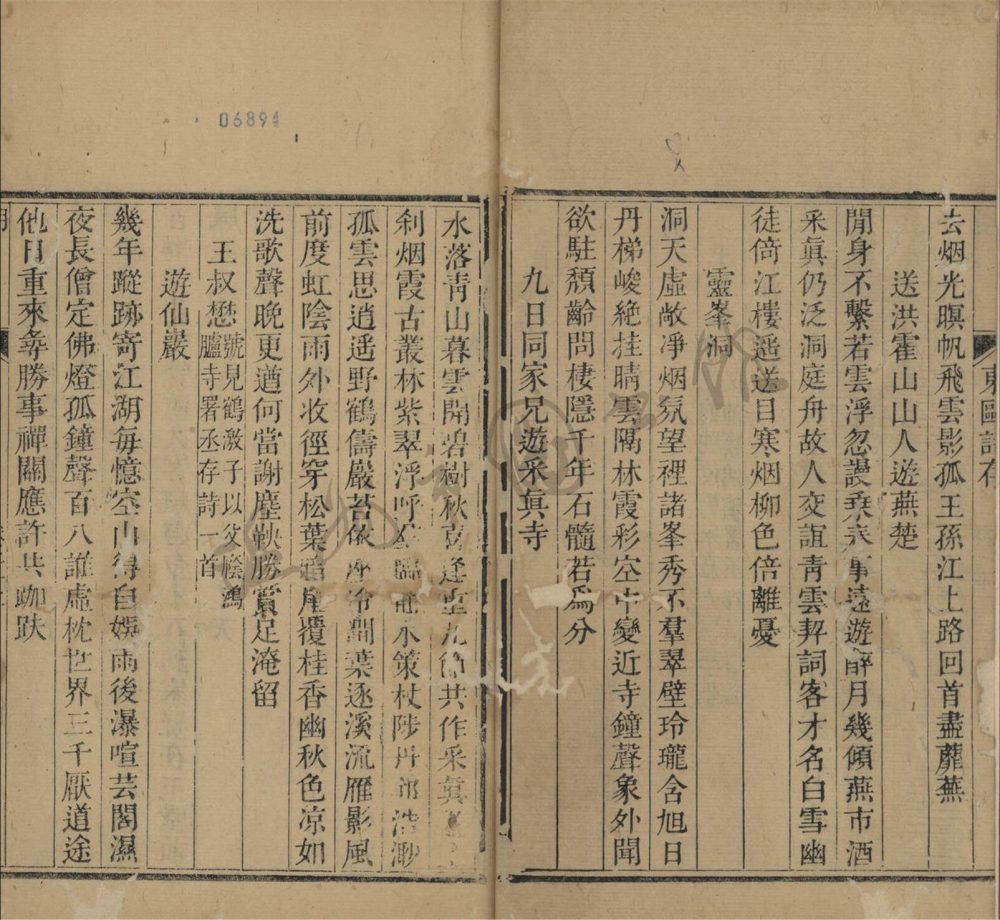 東甌詩存
去烟光暝帆飛雲影孤王孫江上路回首盡蘼蕪
送洪霍山山人遊燕楚
閒身不繫若雲浮忽謾乘事遠遊醉月幾傾燕市酒
采眞仍泛洞庭舟故人交誼青雲契詞客才名白雪幽
徒倚江樓遥送目寒烟柳色倍離憂
靈峯洞
洞天虛敞凈烟氛望裡諸峯秀不羣翠壁玲瓏含旭日
丹梯峻絶挂晴雲隔林霞彩空中變近寺鐘聲象外聞
欲駐頽齡問棲隱千年石髓若爲分
九日同家兄遊采眞寺
06894
水落靑山暮雲開碧樹秋喜逢重九節共作采眞
刹烟霞古叢林紫翠浮呼水策杖陟丹浩渺
孤雲思逍遥野鶴儔巖苔依冷澗葉逐溪流雁影風
前度虹陰雨外收徑穿松葉覆桂香幽秋色凉如
洗歌聲晩更遒何當謝塵鞅勝賞足淹留
王叔懋號見鶴激子以父廕鴻臚寺署丞存詩一首
遊仙巖
幾年蹤跡寄江湖每憶空山得自娛雨後瀑喧芸閣濕
夜長僧定佛燈孤鐘聲百八誰虛枕世界三千厭道途
他日重來尋勝事禪關應許共跏趺